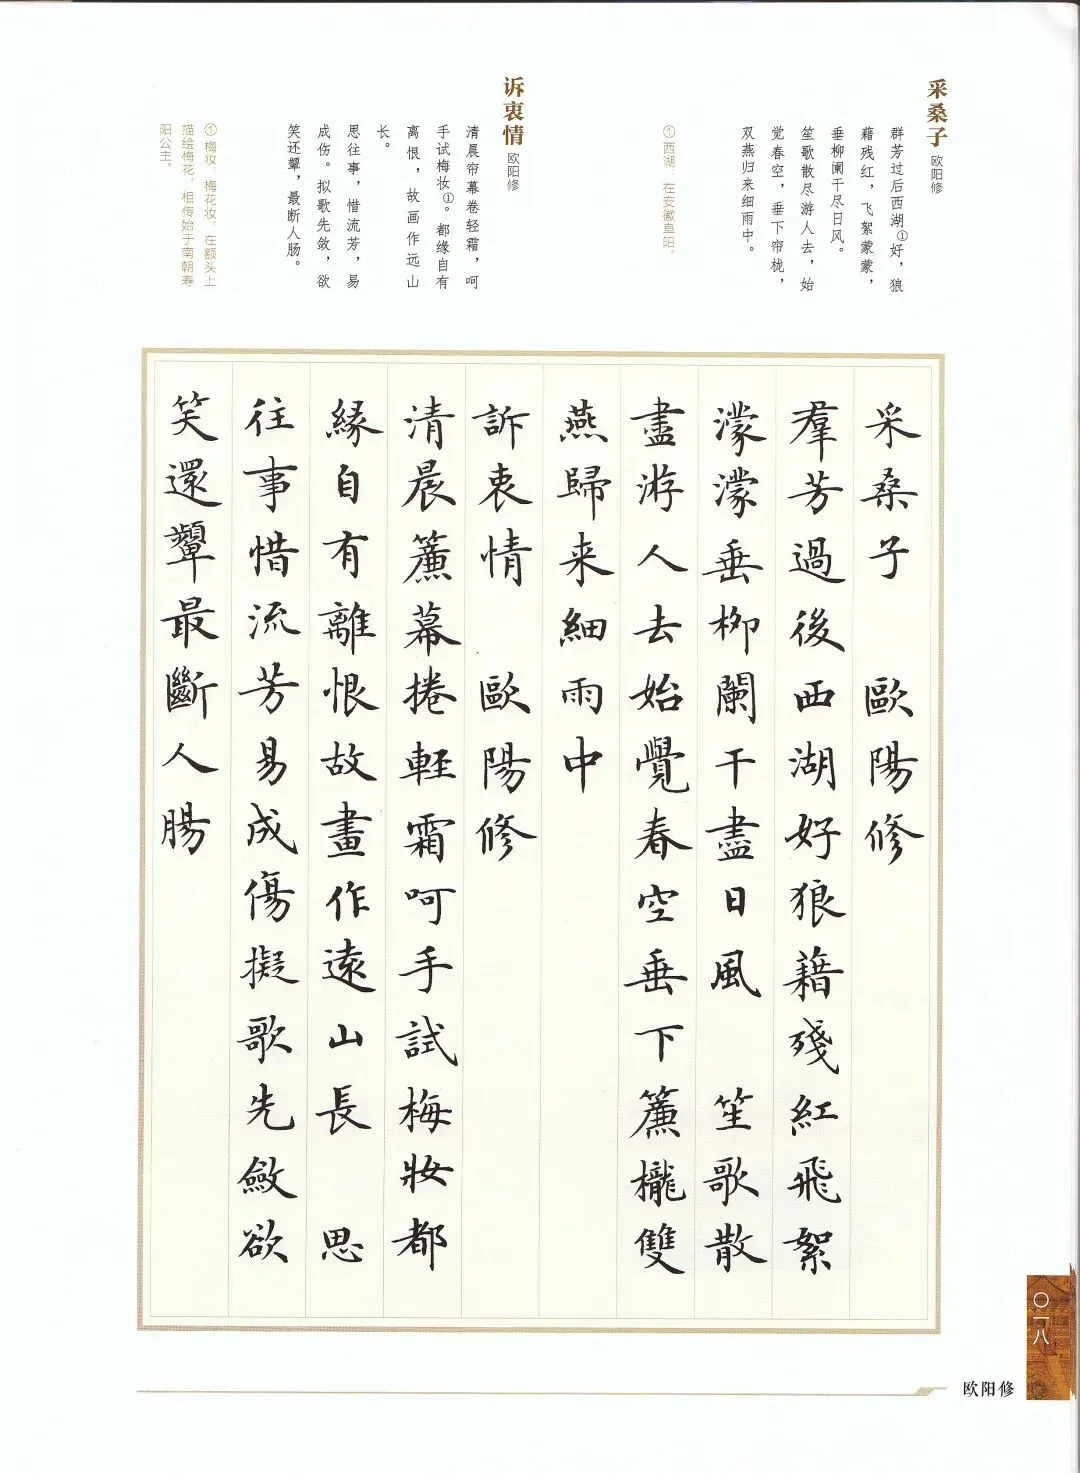 采桑子 欧阳修
群芳过后西湖①好，狼
藉残红，飞絮蒙蒙，
垂柳阑干尽日风。
笙歌散尽游人去，始
觉春空，垂下帘栊，
双燕归来细雨中。
①西湖：在安徽阜阳。
诉衷情 欧阳修
清晨帘幕卷轻霜，呵
手试梅妆①。都缘自有
离恨，故画作远山
长。
思往事，惜流芳，易
成伤。拟歌先敛，欲
笑还颦，最断人肠。
①梅妆：梅花妆，在额头上
描绘梅花，相传始于南朝寿
阳公主。
采桑子 歐陽修
羣芳過後西湖好狼藉殘紅飛絮
濛濛垂柳闌干盡日風 笙歌散
盡游人去始覺春空垂下簾櫳雙
燕歸来細雨中
訴衷情 歐陽修
清晨簾幕捲輕霜呵手試梅妝都
緣自有離恨故畫作遠山長 思
往事惜流芳易成傷擬歌先斂欲
笑還顰最斷人腸
〇一八
欧阳修